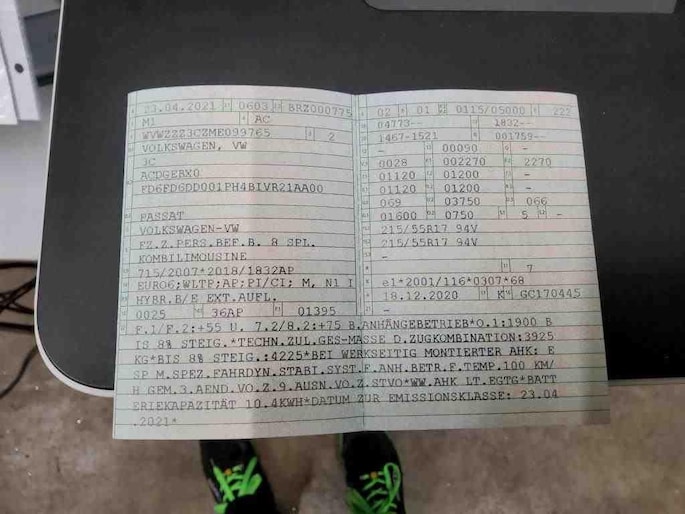 23.04.2021 0603 BRZ000775
M1 AC
WVWZZZ3CZME099765 2
VOLKSWAGEN, VW
3C
ACDGEAX0
FD6FD6DD001PH4BIVR21AA00
PASSAT
VOLKSWAGEN-VW
FZ.Z.PERS.BEF.B. 8 SPL.
KOMBILIMOUSINE
715/2007*2018/1832AP
EURO6;WLTP;AP;PI/CI; M, N1 I
HYBR.B/E EXT.AUFL.
0025 36AP 01395
02 01 0115/05000 222
04773-- 1832--
1467-1521 001759--
- 00090 -
0028 002270 2270
01120 01200 -
01120 01200 -
069 03750 066
01600 0750 5 -
215/55R17 94V
215/55R17 94V
-
7
e1*2001/116*0307*68
18.12.2020 K GC170445
-
F.1/F.2:+55 U. 7.2/8.2:+75 B.ANHÄNGEBETRIEB*O.1:1900 B
IS 8% STEIG.*TECHN.ZUL.GES-MASSE D.ZUGKOMBINATION:3925
KG*BIS 8% STEIG.:4225*BEI WERKSEITIG MONTIERTER AHK: E
SP M.SPEZ.FAHRDYN.STABI.SYST.F.ANH.BETR.F.TEMP.100 KM/
H GEM.3.AEND.VO.Z.9.AUSN.VO.Z.STVO*WW.AHK LT.EGTG*BATT
ERIEKAPAZITÄT 10.4KWH*DATUM ZUR EMISSIONSKLASSE: 23.04
.2021*